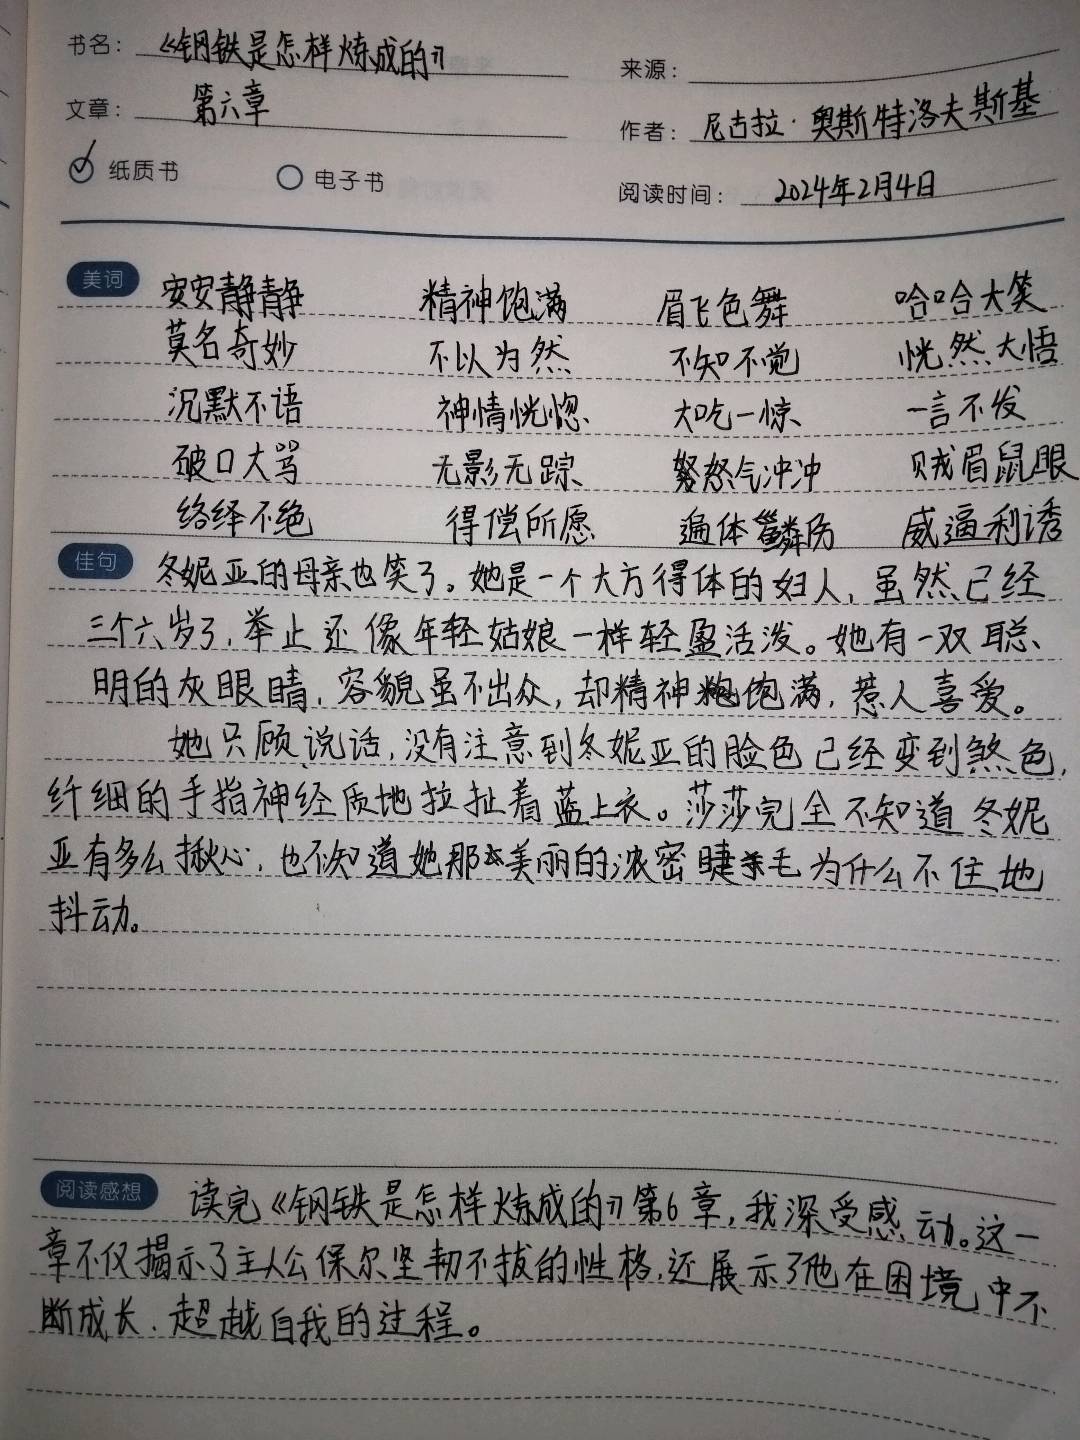 书名：《钢铁是怎样炼成的》
来源：
文章：第六章
作者：尼古拉·奥斯特洛夫斯基
纸质书 电子书
阅读时间：2024年2月4日
美词 安安静静 精神饱满 眉飞色舞 哈哈大笑
莫名奇妙 不以为然 不知不觉 恍然大悟
沉默不语 神情恍惚 大吃一惊 一言不发
破口大骂 无影无踪 怒气冲冲 贼眉鼠眼
络绎不绝 得偿所愿 遍体鳞伤 威逼利诱
佳句 冬妮亚的母亲也笑了。她是一个大方得体的妇人，虽然已经
三个六岁了，举止还像年轻姑娘一样轻盈活泼。她有一双聪
明的灰眼睛，容貌虽不出众，却精神饱满，惹人喜爱。
她只顾说话，没有注意到冬妮亚的脸色已经变到煞色，
纤细的手指神经质地拉扯着蓝上衣。莎莎完全不知道冬妮
亚有多么揪心，也不知道她那美丽的浓密睫毛为什么不住地
抖动。
阅读感想 读完《钢铁是怎样炼成的》第6章，我深受感动。这一
章不仅揭示了主人公保尔坚韧不拔的性格，还展示了他在困境中不
断成长、超越自我的过程。